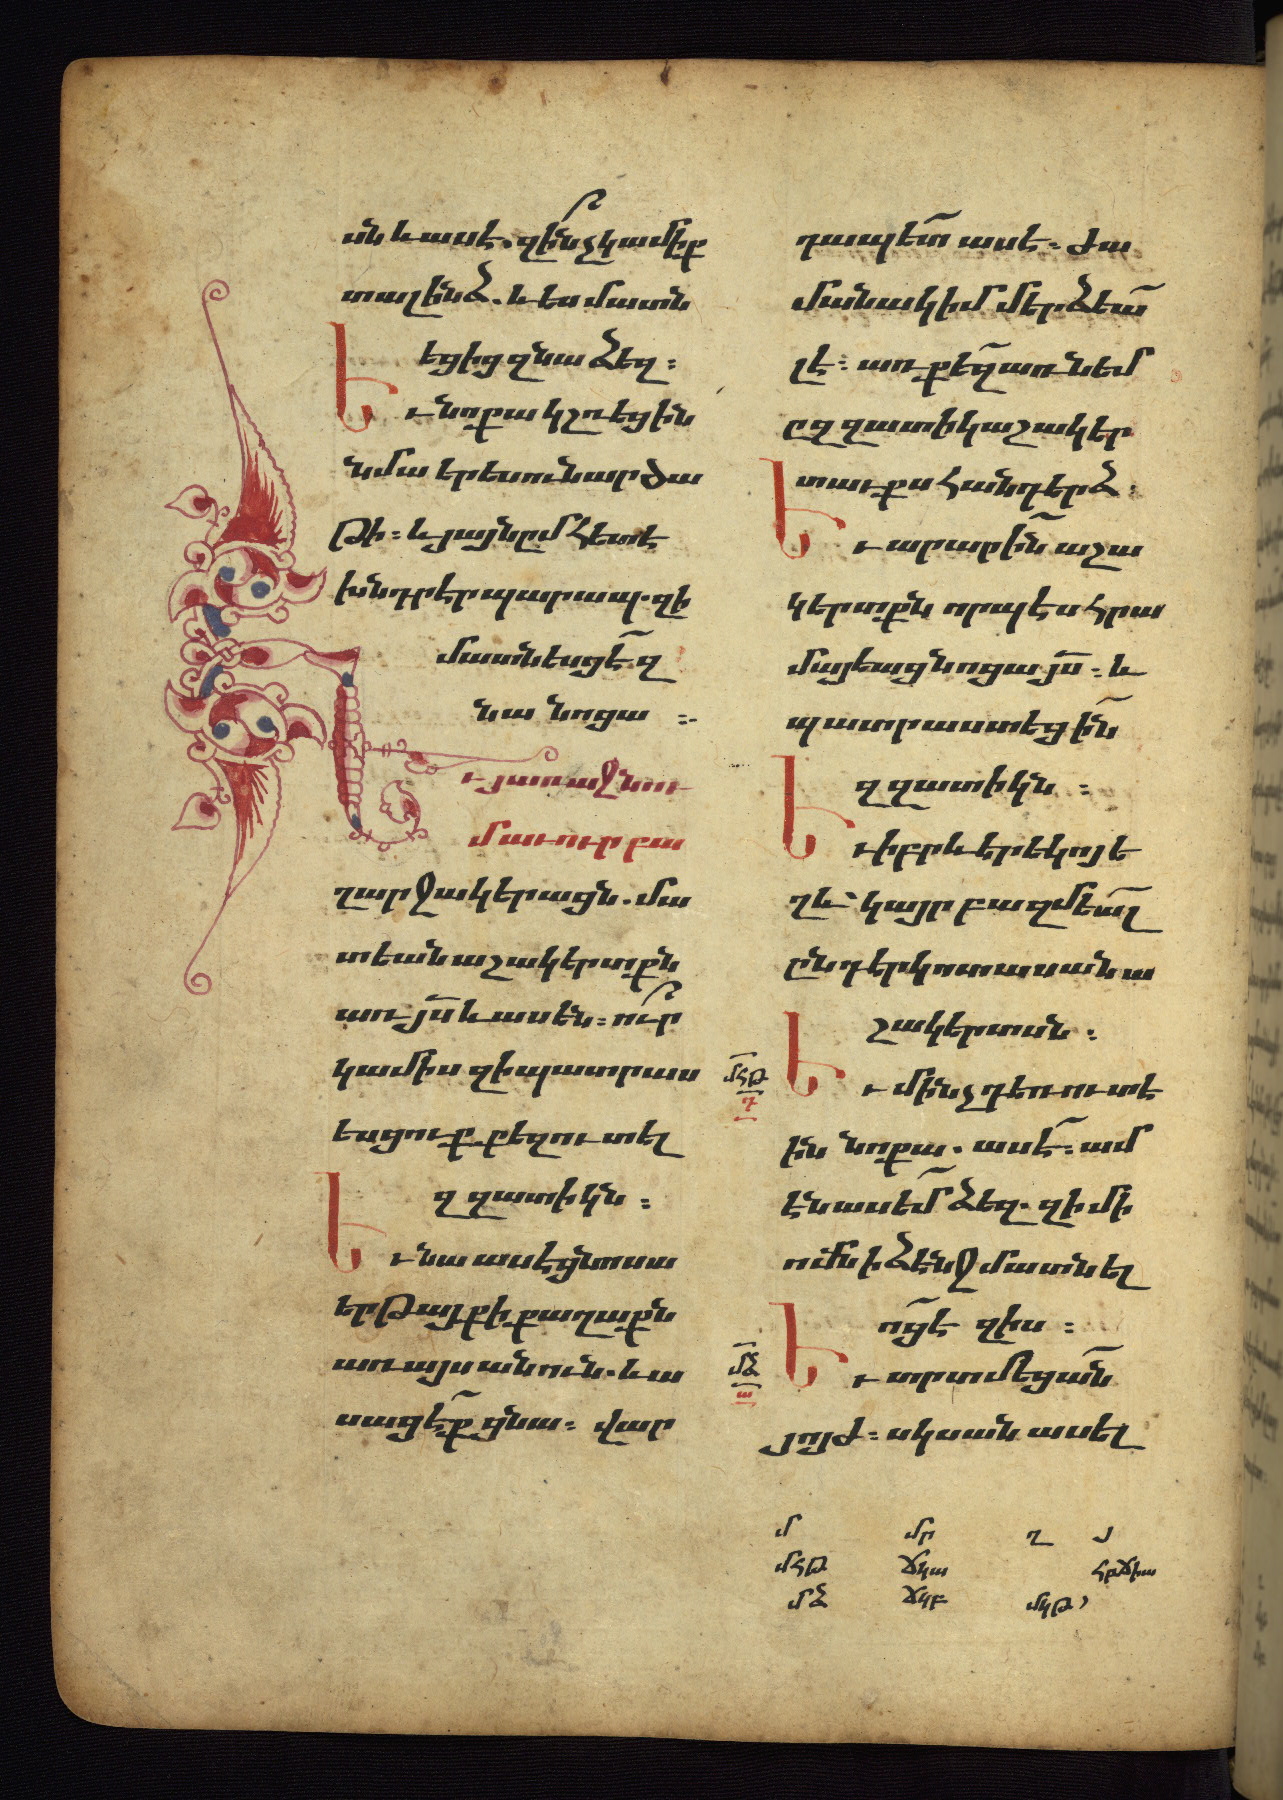 սն և ասէ. զի՞նչ կամիք
տալ ինձ. և ես մատն
եցից զնա ձեզ։
Եւ նոքա կշռեցին
նմա երեսուն արծա
թի։ և յայնմ հետէ
խնդրէր պարապ. զի
մատնեսցէ զ
նա նոցա ։.
Եւ յառաջնու
մ աւուր բա
ղարջակերացն. մա
տեան աշակերտքն
առ յս և ասեն։ ո՞ւր
կամիս զի պատրաս
տեսցուք քեզ ուտել
զզատիկն ։
Եւ նա ասէ ցնոսա
երթայք ի քաղաքն
առ այս անուն. և ա
սացէք ցնա։ վար
դապետ ասէ։ ժա
մանակ իմ մերձեա
լ է։ առ քեզ առնեմ
ըզզատիկ աշակեր
տաւքս հանդերձ։
Եւ արարին աշա
կերտքն որպէս հրա
մայեաց նոցա յս։ և
պատրաստեցին
զզատիկն ։
Եւ իբրև երեկոյ ե
ղև՝ կայր բազմեալ
ընդ երկոտասան ա
շակերտսն ։
Եւ մինչդեռ ուտէ
ին նոքա. ասէ։ ամ
էն ասեմ ձեզ. զի մի
ոմն ի ձէնջ մատնել
ոց է զիս ։
Եւ տրտմեցան
յոյժ։ սկսան ասել
մհթ
դ
մձ
ա
մ մր ղ յ
մհթ ճկա հբճխա
մձ ճկբ մկթ